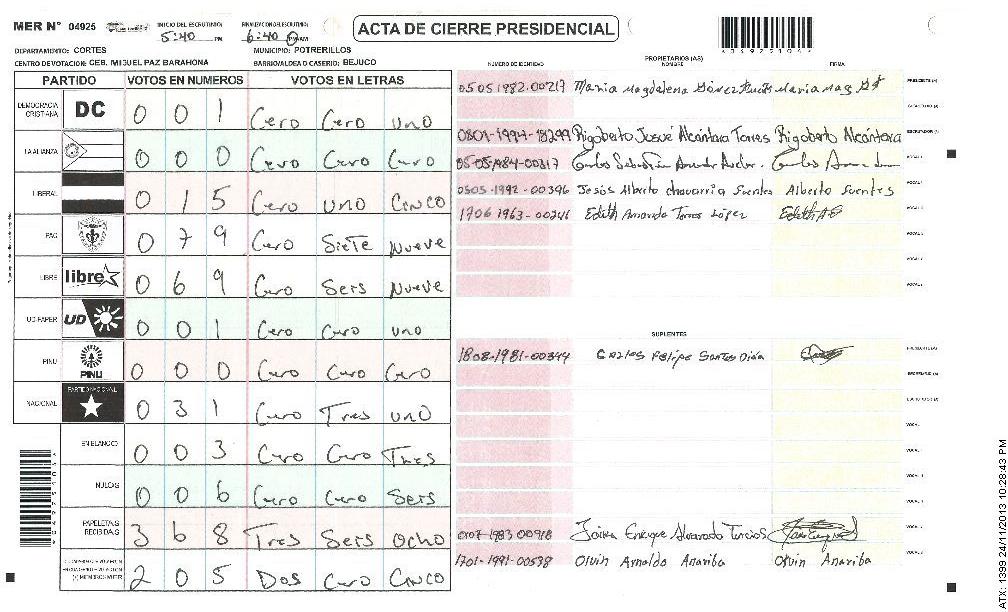 MER N° 04925 INICIO DEL ESCRUTINIO: 5:40 PM FINALIZACION DEL ESCRUTINIO: 6:40 PM ACTA DE CIERRE PRESIDENCIAL
DEPARTAMENTO: CORTES MUNICIPIO: POTRERILLOS
CENTRO DE VOTACION: CEB. MIGUEL PAZ BARAHONA BARRIO/ALDEA O CASERIO: BEJUCO
PARTIDO VOTOS EN NUMEROS VOTOS EN LETRAS
DEMOCRACIA CRISTIANA DC 0 0 1 Cero Cero uno
LA ALIANZA 0 0 0 Cero Cero Cero
LIBERAL 0 1 5 Cero uno Cinco
PAC 0 7 9 Cero Siete Nueve
LIBRE libre 0 6 9 Cero Seis Nueve
UD-FAPER UD 0 0 1 Cero Cero uno
PINU PINU 0 0 0 Cero Cero Cero
NACIONAL PARTIDO NACIONAL 0 3 1 Cero Tres uno
EN BLANCO 0 0 3 Cero Cero Tres
NULOS 0 0 6 Cero Cero Seis
PAPELETAS RECIBIDAS 3 6 8 Tres Seis Ocho
2 0 5 Dos Cero Cinco
PROPIETARIOS (AS)
NUMERO DE IDENTIDAD NOMBRE FIRMA
0505 1982-00217 Maria Magdalena Maria Mag
0801-1994-18299 Rigoberto Josué Alcántara Torres Rigoberto Alcántara
05-05-1984-00317 Carlos Carlos
0505-1992-00396 Jesús Alberto chavarria fuentes Alberto fuentes
1706 1963-00246 Edith Amanda Torres López Edith
SUPLENTES
1808-1981-00344 Carlos Felipe Santos
0107-1983 00918 Enrique Alvarado Turcios
1701-1991-00538 Olvin Arnaldo Anariba Olvin Anariba
ATX: 1399 24/11/2013 10:28:43 PM